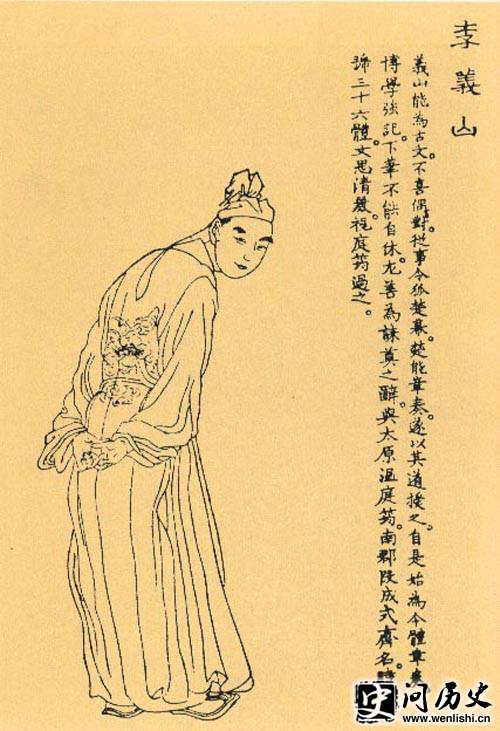 李義山
義山能為古文。不喜偶對。從事令狐楚幕。楚能章奏。遂以其道授之。自是始為今體章奏
博學強記。下筆不能自休。尤善為誄奠之辭。與太原溫庭筠。南郡段成式齊名。時
號三十六體。文思清麗。視庭筠過之。
史问历史
www.wenlishi.cn